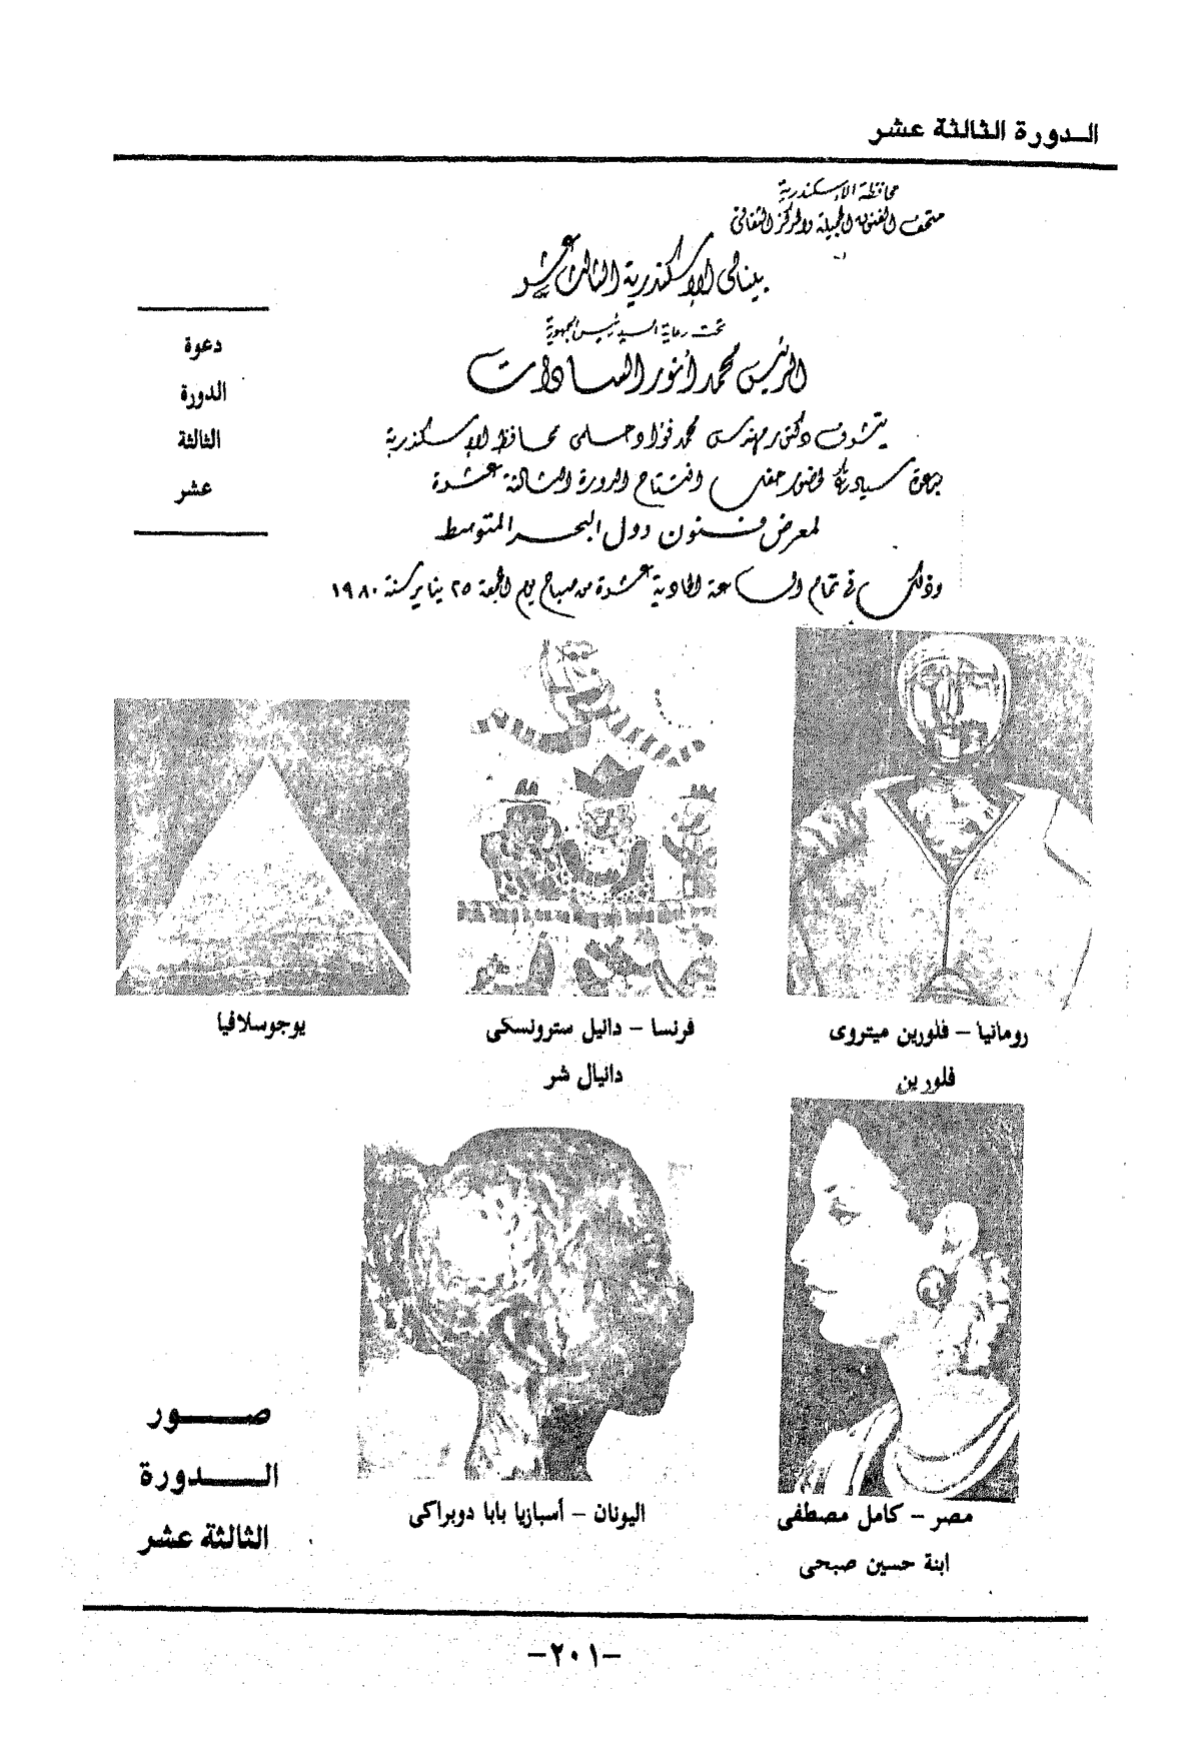 الـدورة الثالثة عشر
محافظة الإسكندرية
متحف الفنون الجميلة والمركز الثقافى
بينالى الإسكندرية الثالث عشر
تحت رعاية السيد رئيس الجمهورية
الرئيس محمد أنور السادات
يتشرف دكتور مهندس محمد فؤاد حلمى محافظ الإسكندرية
بدعوة سيادتكم لحضور حفل افتتاح الدورة الثالثة عشرة
لمعرض فنون دول البحر المتوسط
وذلك فى تمام الساعة الحادية عشرة من صباح يوم الجمعة ٢٥ يناير سنة ١٩٨٠
دعوة
الدورة
الثالثة
عشر
رومانيا - فلورين ميتروى
فلورين
فرنسا - دانيل سترونسكى
دانيال شر
يوجوسلافيا
مصر - كامل مصطفى
ابنة حسين صبحى
اليونان - أسبازيا بابا دوبراكى
صــــور
الــــدورة
الثالثة عشر
-٢٠١-